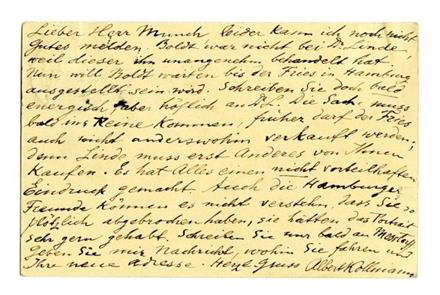 Lieber Herr Munch leider kann ich noch nicht
Gutes melden. Boldt war nicht bei Dr. Linde,
weil dieser ihn unangenehm behandelt hat
Nun will Boldt warten bis der Fries in Hamburg
ausgestellt sein wird. Schreiben Sie doch bald
energisch aber höflich an Dr. L. Die Sach. muss
bald ins Reine kommen, früher darf der Fries
auch nicht anderswohin verkauft werden,
denn Linde muss erst Anderes von Ihnen
Kaufen. Es hat Alles einen nicht vorteilhaften
Eindruck gemacht Auch die Hamburger
Freunde können es nicht verstehn, dass Sie so
plötzlich abgebrochen haben, sie hätten das Portrait
sehr gern gehabt. Schreiben Sie nur bald an
Geben Sie mir Nachricht, wohin Sie fahren und
Ihre neue Adresse Herzl. Gruss Albert Kollmann